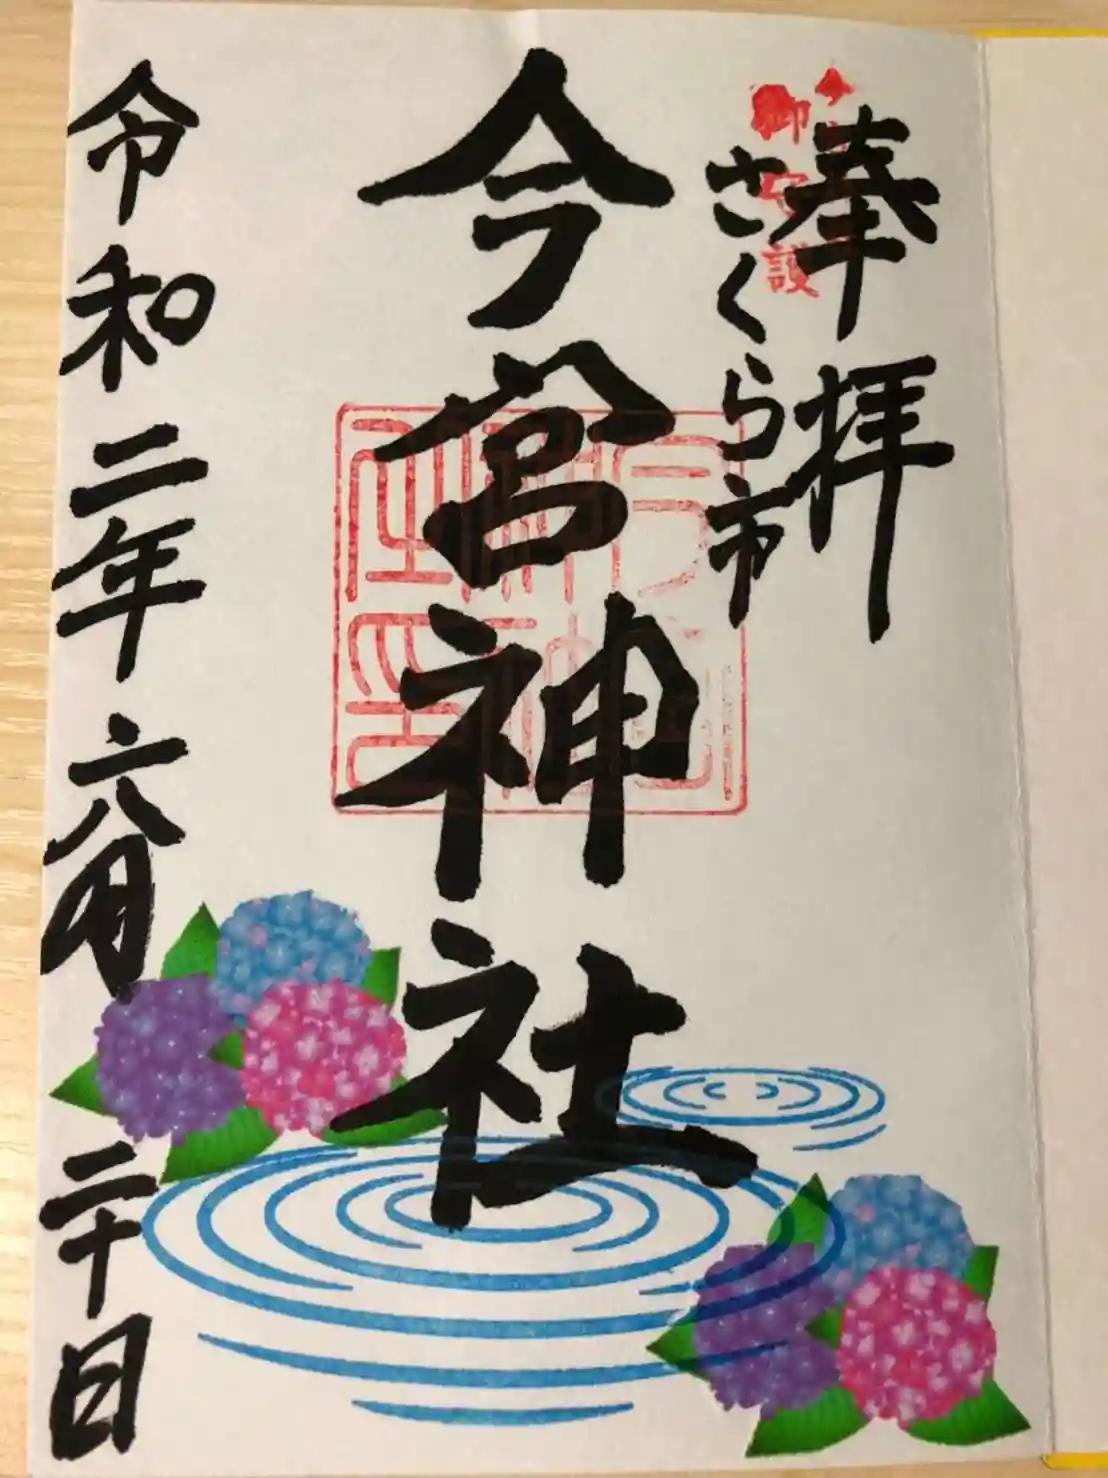 奉拝
御守護
さくら市
今宮神社
令和二年六月二十日